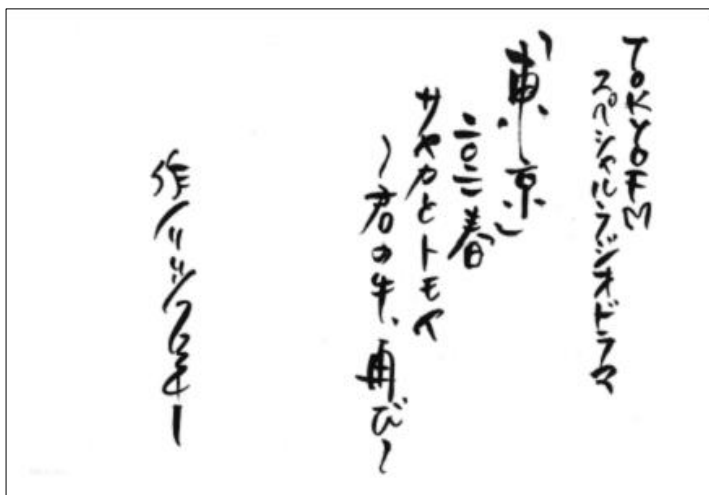 TOKYO FM
スペシャル・ラジオドラマ
「東京」
二〇一一春
サヤカとトモヤ
～君の手、再び～
作/リリー・フランキー